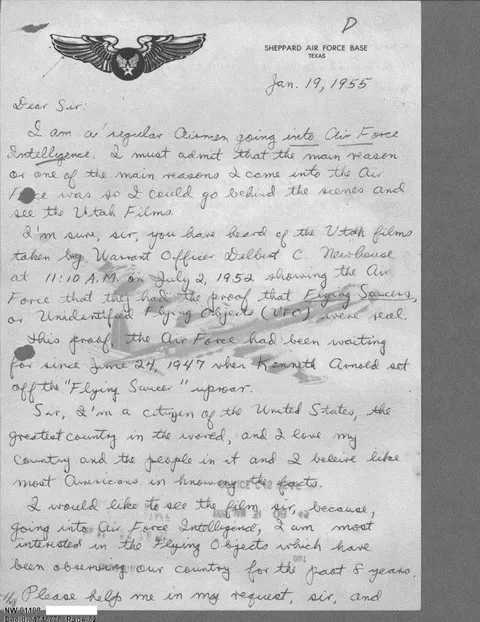 D
SHEPPARD AIR FORCE BASE
TEXAS
Jan. 19, 1955
Dear Sir:
I am a regular Airmen going into Air Force
Intelligence. I must admit that the main reason
or one of the main reasons I came into the Air
Force was so I could go behind the scenes and
see the Utah Films.
I'm sure, sir, you have heard of the Utah films
taken by Warrant Officer Delbert C. Newhouse
at 11:10 A.M. on July 2, 1952 showing the Air
Force that they had the proof that Flying Saucers,
or Unidentified Flying Objects (UFO) were real.
This proof the Air Force had been waiting
for since June 24, 1947 when Kenneth Arnold set
off the "Flying Saucer" uproar.
Sir, I'm a citizen of the United States, the
greatest country in the world, and I love my
country and the people in it and I beleive like
most Americans in knowing the facts.
I would like to see the film sir, because,
going into Air Force Intelligence, I am most
interested in the Flying Objects which have
been observing our country for the past 8 years.
Please help me in my request, sir, and
NW-91188
DocId:34746776 Page 52